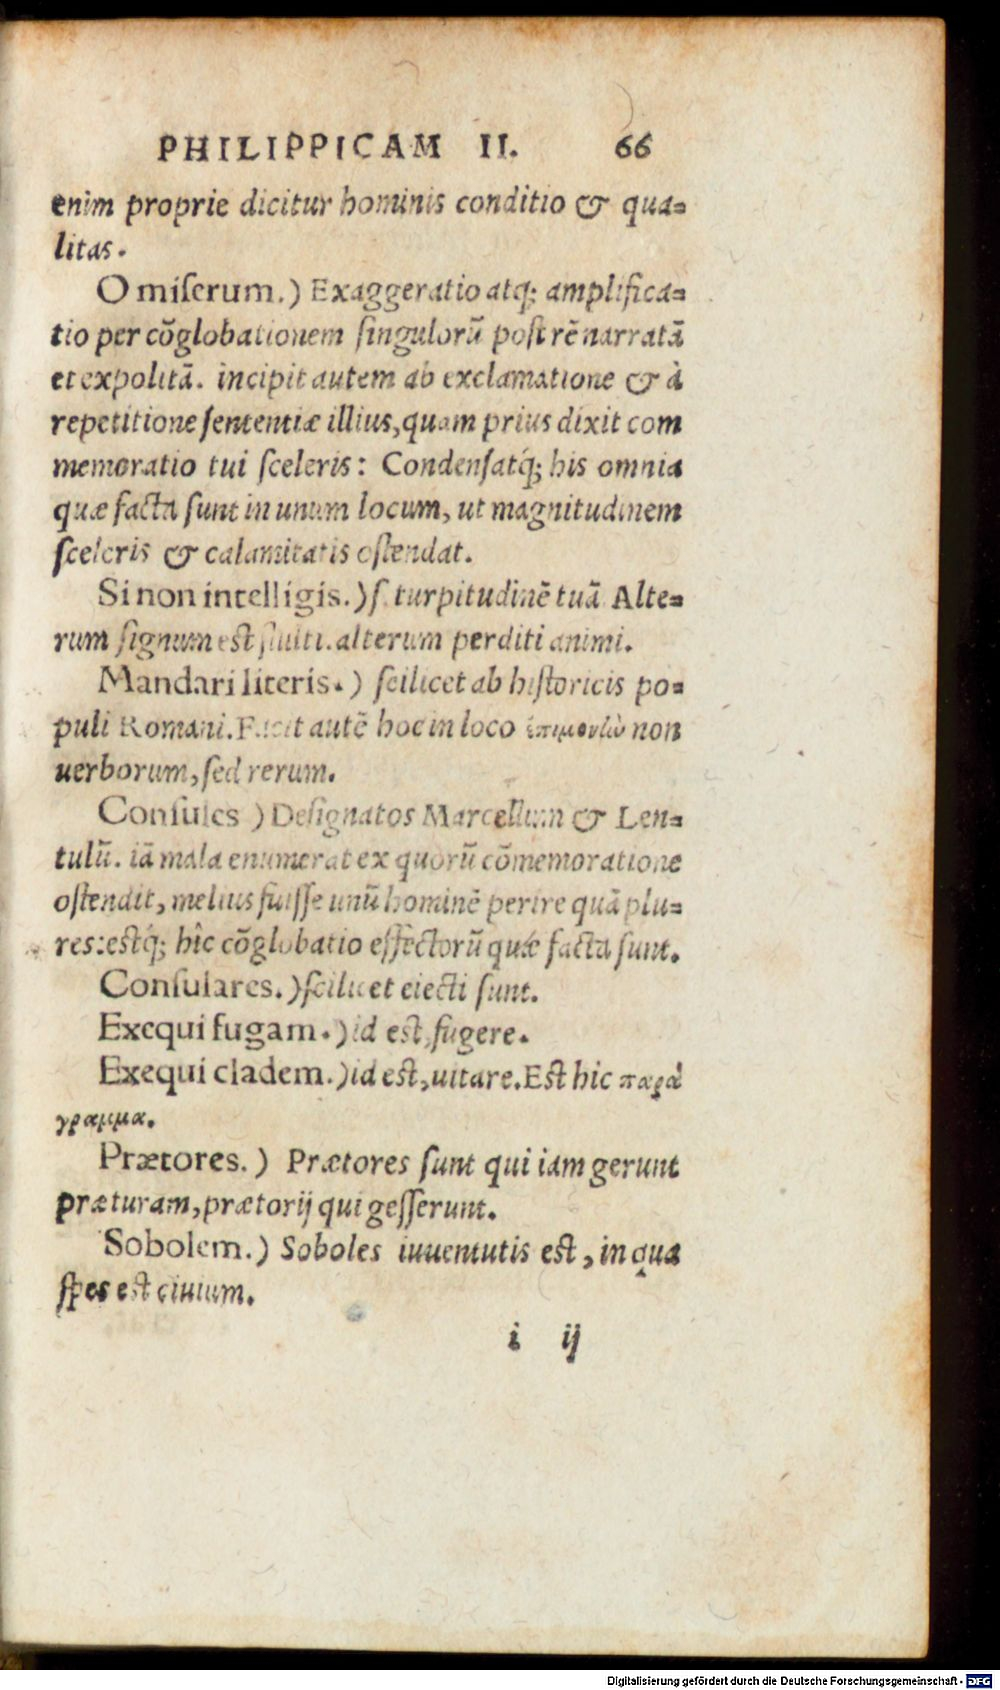 PHILIPPICAM II. 66
enim proprie dicitur hominis conditio & qua=
litas.
O miserum.) Exaggeratio atq; amplifica=
tio per cōglobationem singulorū post rē narratā
et expolitā. incipit autem ab exclamatione & à
repetitione sententiæ illius, quam prius dixit com
memoratio tui sceleris: Condensatq́; his omnia
quæ facta sunt in unum locum, ut magnitudinem
sceleris & calamitatis ostendat.
Si non intelligis.) s. turpitudinē tuā Alte=
rum signum est stulti. alterum perditi animi.
Mandari literis.) scilicet ab historicis po=
puli Romani. Facit autē hoc in loco ἐπιμονὼ non
uerborum, sed rerum.
Consules ) Designatos Marcellum & Len=
tulū. iā mala enumerat ex quorū cōmemoratione
ostendit, melius fuisse unū hominē perire quā plu=
res: estq́; hîc cōglobatio effectorū quæ facta sunt.
Consulares.) scilicet eiecti sunt.
Exequi fugam.) id est, fugere.
Exequi cladem.) id est, uitare. Est hic παρὰ
γραμμα.
Prætores.) Prætores sunt qui iam gerunt
præturam, prætorij qui gesserunt.
Sobolem.) Soboles iuuentutis est, in qua
spes est ciuium.
i ij
Digitalisierung gefördert durch die Deutsche Forschungsgemeinschaft - DFG